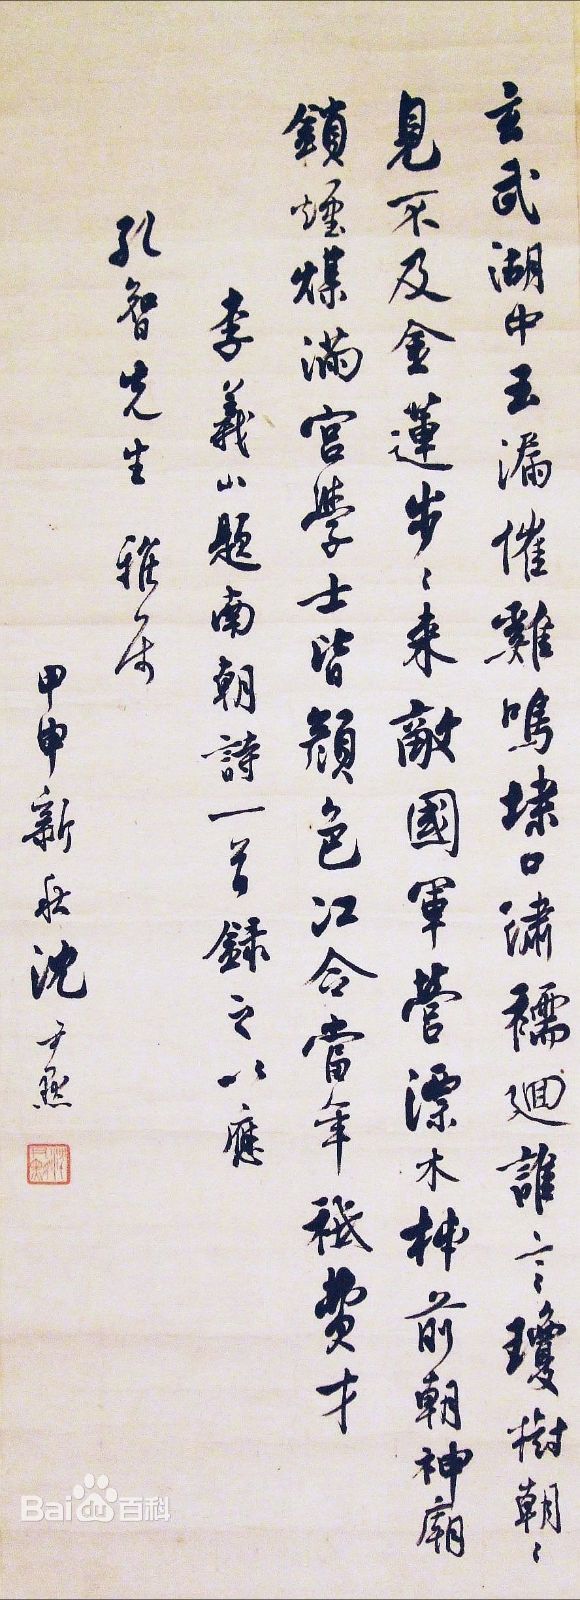 玄武湖中玉漏催雞鳴埭口繡襦迴誰言瓊樹朝〻
見不及金蓮步〻来敵國軍營漂木柹前朝神廟
鎖煙煤滿宮學士皆顔色江令當年祗費才
李義山題南朝詩一首録之以應
孔智先生 雅屬
甲申新秋沈尹默
Baidu百科